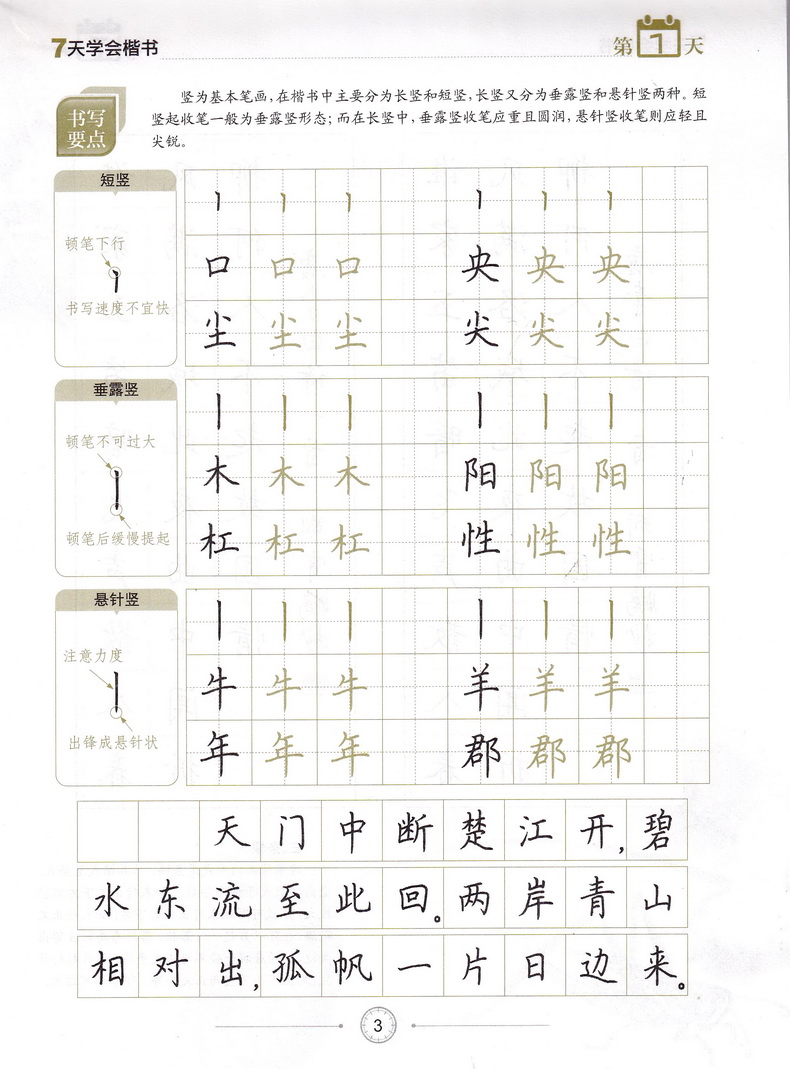 7天学会楷书
第1天
书写要点
竖为基本笔画，在楷书中主要分为长竖和短竖，长竖又分为垂露竖和悬针竖两种。短
竖起收笔一般为垂露竖形态；而在长竖中，垂露竖收笔应重且圆润，悬针竖收笔则应轻且
尖锐。
短竖
顿笔下行
书写速度不宜快
口 口 口 央 央 央
尘 尘 尘 尖 尖 尖
垂露竖
顿笔不可过大
顿笔后缓慢提起
木 木 木 阳 阳 阳
杠 杠 杠 性 性 性
悬针竖
注意力度
出锋成悬针状
牛 牛 牛 羊 羊 羊
年 年 年 郡 郡 郡
天门中断楚江开，碧
水东流至此回。两岸青山
相对出，孤帆一片日边来。
3